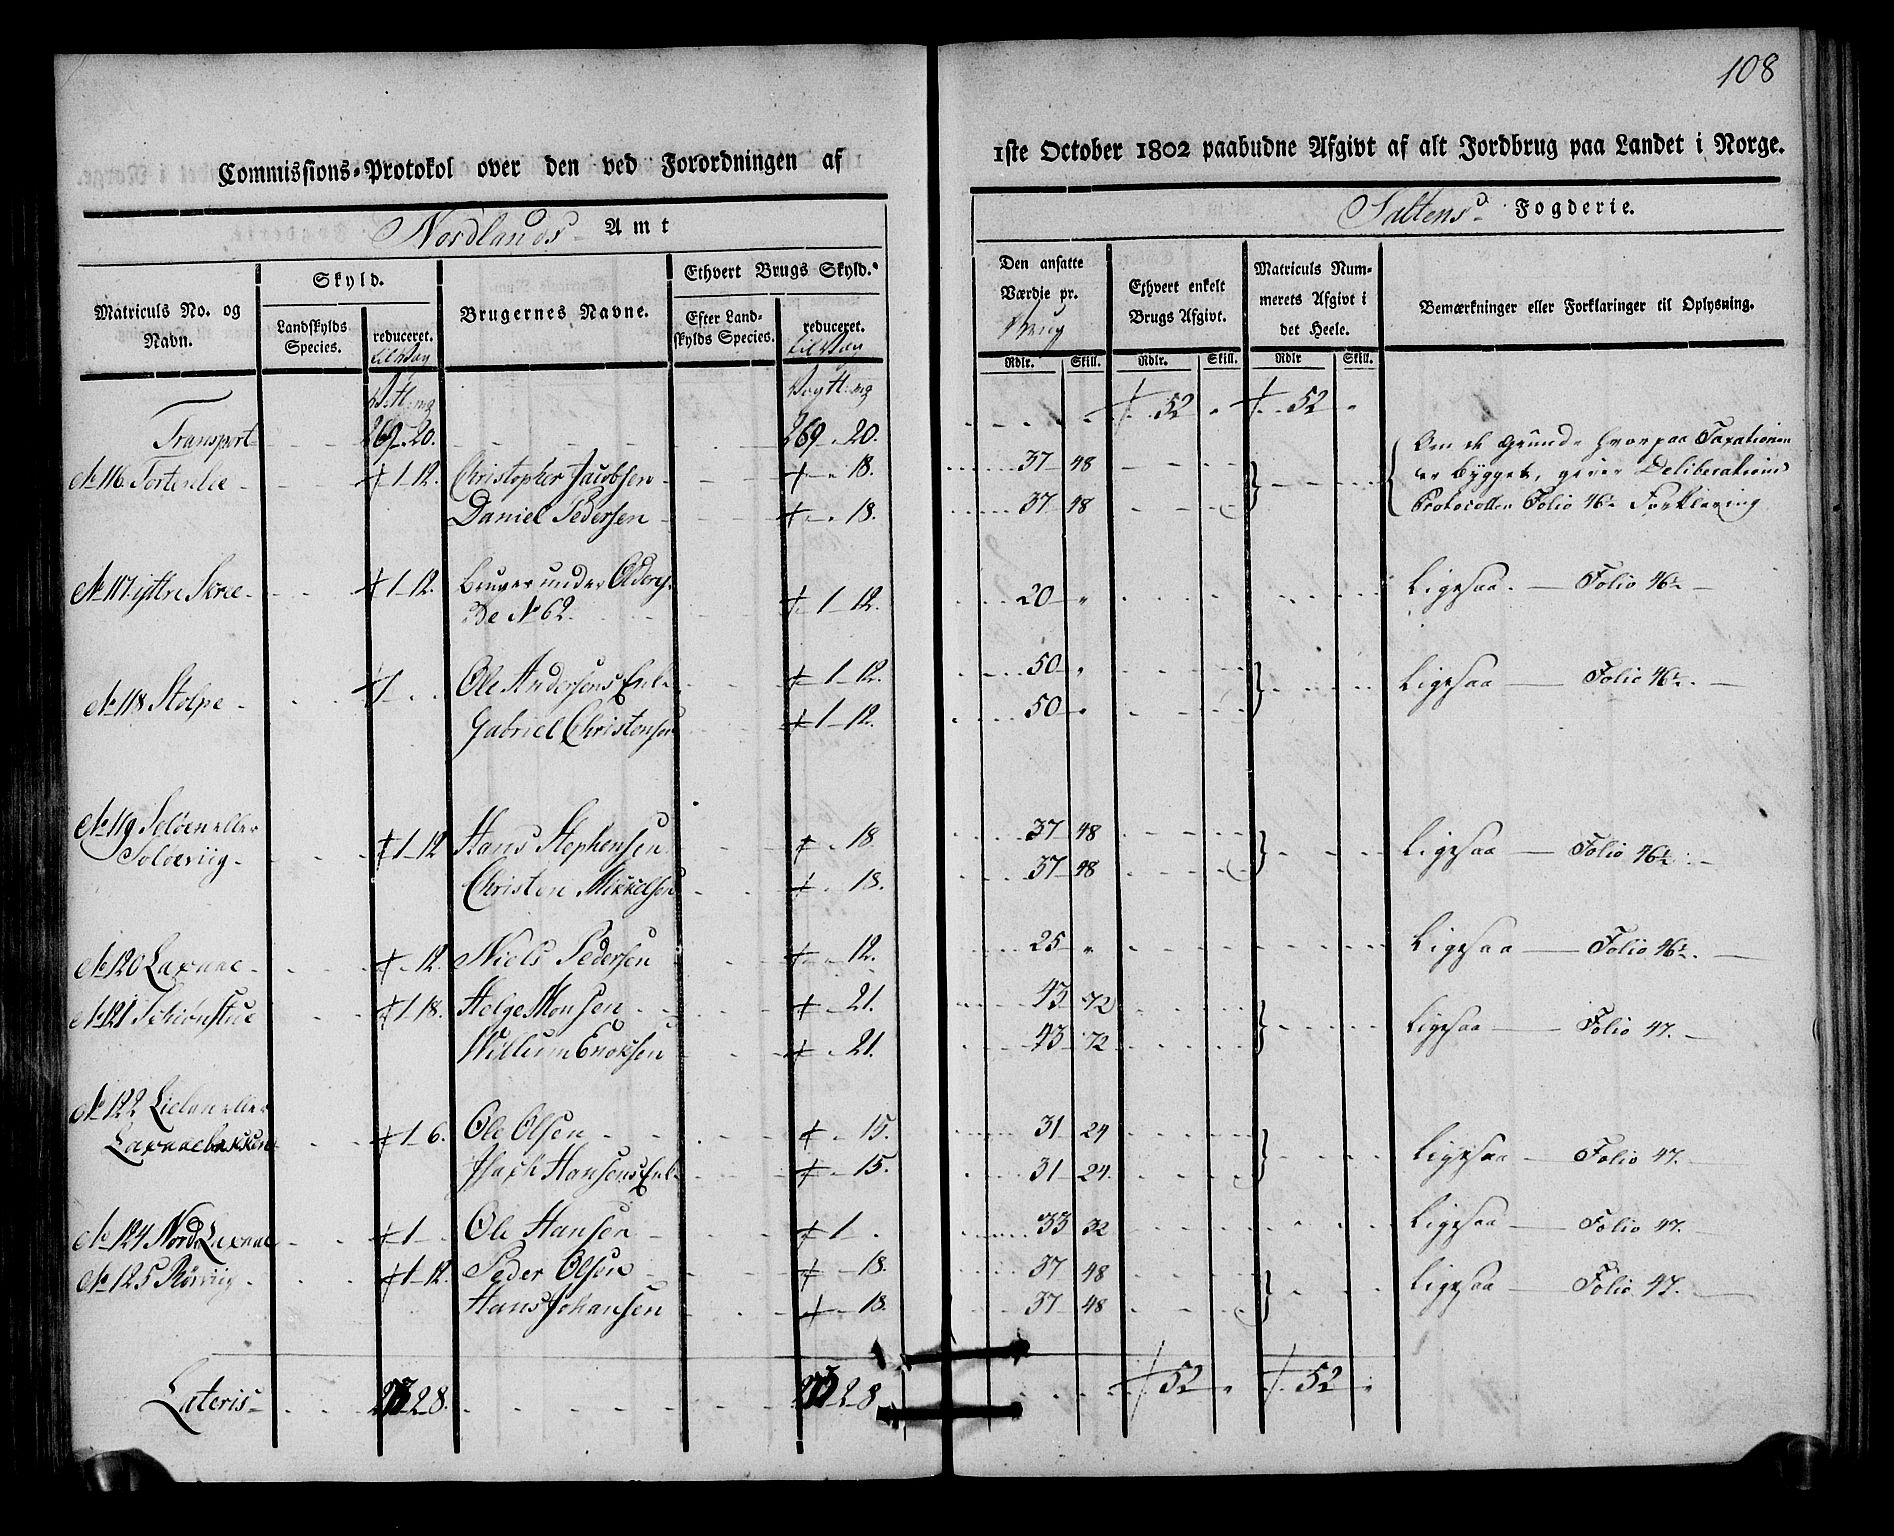 108
Commissions-Protokol over den ved Forordningen af 1ste October 1802 paabudne Afgivt af alt Jordbrug paa Landet i Norge.
Nordlands Amt
Saltens Fogderie.
Matriculs No. og Navn.
Skyld.
Landskylds Species.
reduceret.
Brugernes Navne.
Ethvert Brugs Skyld.
Efter Landskylds Species.
reduceret.
Den ansatte Værdie pr. Brug
Rdlr. Skill.
Ethvert enkelt Brugs Afgivt.
Rdlr. Skill.
Matriculs Nummerets Afgivt i det Heele.
Rdlr Skill.
Bemærkninger eller Forklaringer til Oplysning.
Transport 269 - 20. 269 - 20. 52 " 52 "
No 116 1 - 12. Christopher Jacobsen " 18. 37 48 Om de Grunde hvorpaa Taxationen
Daniel Pedersen " 18. 37 48 er bygget, giver Deliberations
Protocollen Folio 46. Forklaring
No 117 yttre 1 - 12. Bruges under
No 62. 1 - 12. 20 " Ligesaa. Folio 46.
No 118 Stolpe 1 Ole Andersens Enke 1 - 12. 50 " Ligesaa Folio 46.
Gabriel Christensen 1 - 12. 50 "
No 119 Soløen eller
Soløeviig 1 - 12 Hans Stephensen " 18. 37 48 Ligesaa Folio 46
Christen Mikkelsen " 18. 37 48
No 120 Laxaae " 12. Niels Pedersen " 12. 25 " Ligesaa Folio 46.
No 121 Schiønstue 1 - 18. Helge Monsen " 21. 43 72 Ligesaa Folio 47.
Willum Enoksen " 21. 43 72
No 122 Lielan eller
Laxaaebakken 1 - 6. Ole Olsen " 15. 31 24 Ligesaa Folio 47.
Hansens Enke " 15. 31 24.
No 124 Nord Laxaae 1 - Ole Hansen 1 - 33 32 Ligesaa Folio 47.
No 125 Rørviig 1 - 12 Peder Olsen " 18. 37 48 Ligesaa Folio 47.
Hans Johansen " 18. 37 48
Lateris 2 8. 2 8 52 " 52 "